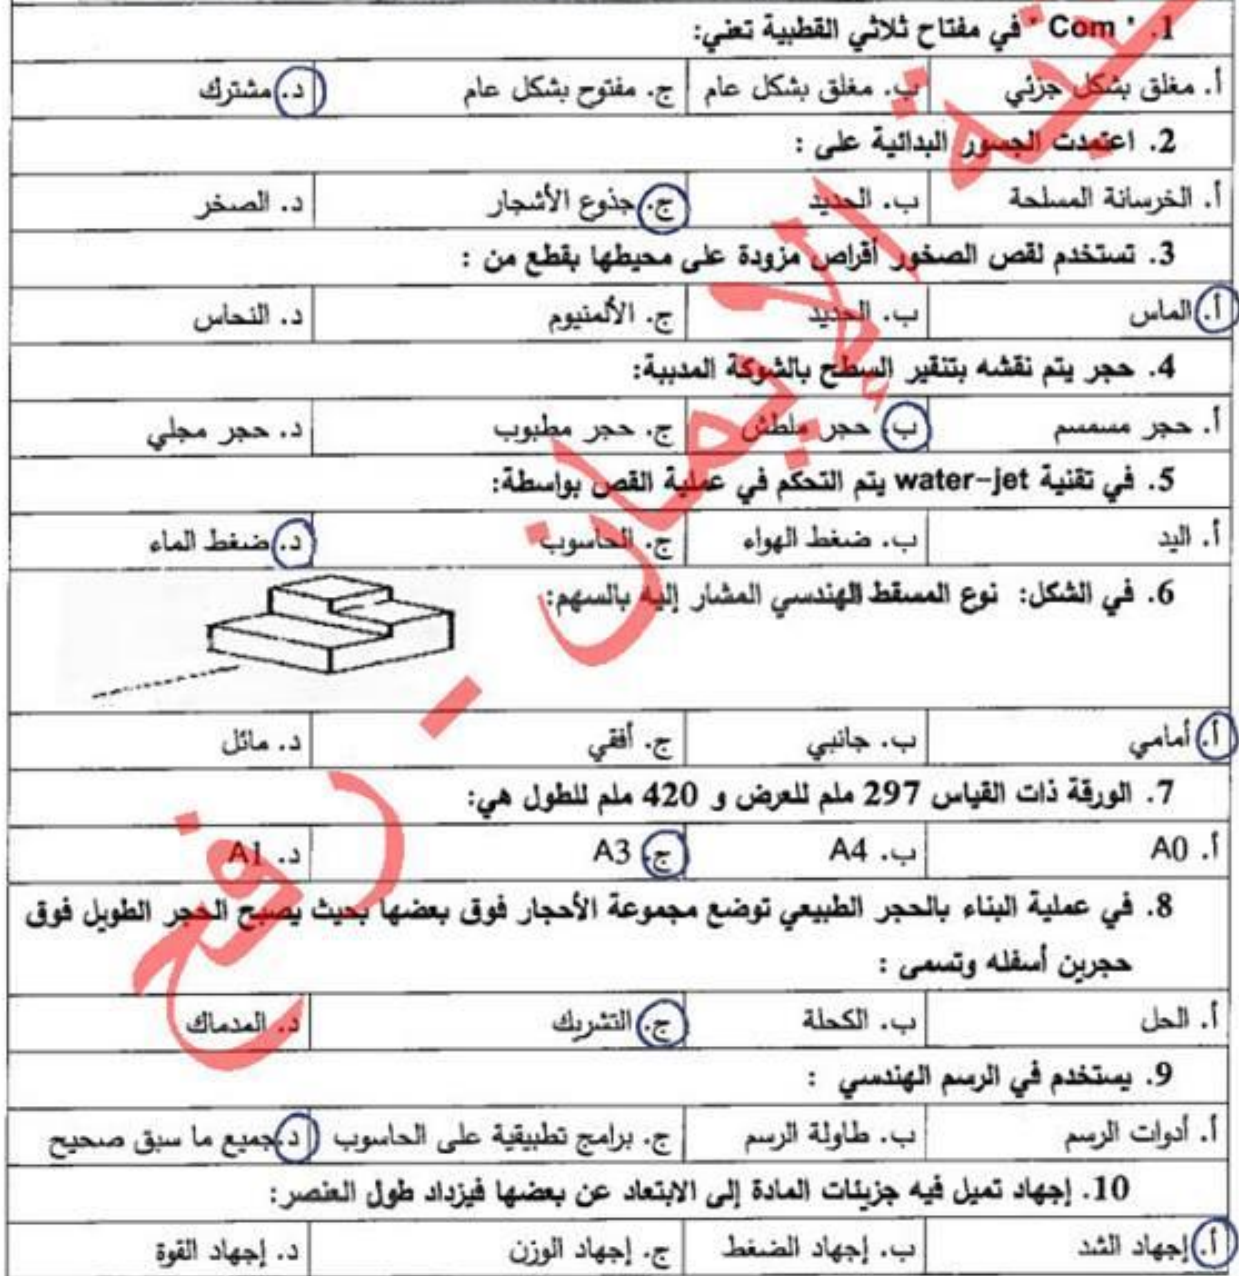 1. " Com " في مفتاح ثلاثي القطبية تعني:
أ. مغلق بشكل جزئي ب. مغلق بشكل عام ج. مفتوح بشكل عام د. مشترك
2. اعتمدت الجسور البدائية على :
أ. الخرسانة المسلحة ب. الحديد ج. جذوع الأشجار د. الصخر
3. تستخدم لقص الصخور أقراص مزودة على محيطها بقطع من :
أ. الماس ب. الحديد ج. الألمنيوم د. النحاس
4. حجر يتم نقشه بتنقير السطح بالشوكة المدببة:
أ. حجر مسمسم ب. حجر ملطش ج. حجر مطبوب د. حجر مجلي
5. في تقنية water-jet يتم التحكم في عملية القص بواسطة:
أ. اليد ب. ضغط الهواء ج. الحاسوب د. ضغط الماء
6. في الشكل: نوع المسقط الهندسي المشار إليه بالسهم:
أ. أمامي ب. جانبي ج. أفقي د. مائل
7. الورقة ذات القياس 297 ملم للعرض و 420 ملم للطول هي:
أ. A0 ب. A4 ج. A3 د. A1
8. في عملية البناء بالحجر الطبيعي توضع مجموعة الأحجار فوق بعضها بحيث يصبح الحجر الطويل فوق
حجرين أسفله وتسمى :
أ. الحل ب. الكحلة ج. التشريك د. المدماك
9. يستخدم في الرسم الهندسي :
أ. أدوات الرسم ب. طاولة الرسم ج. برامج تطبيقية على الحاسوب د. جميع ما سبق صحيح
10. إجهاد تميل فيه جزيئات المادة إلى الابتعاد عن بعضها فيزداد طول العنصر:
أ. إجهاد الشد ب. إجهاد الضغط ج. إجهاد الوزن د. إجهاد القوة
الإيمان - رفح